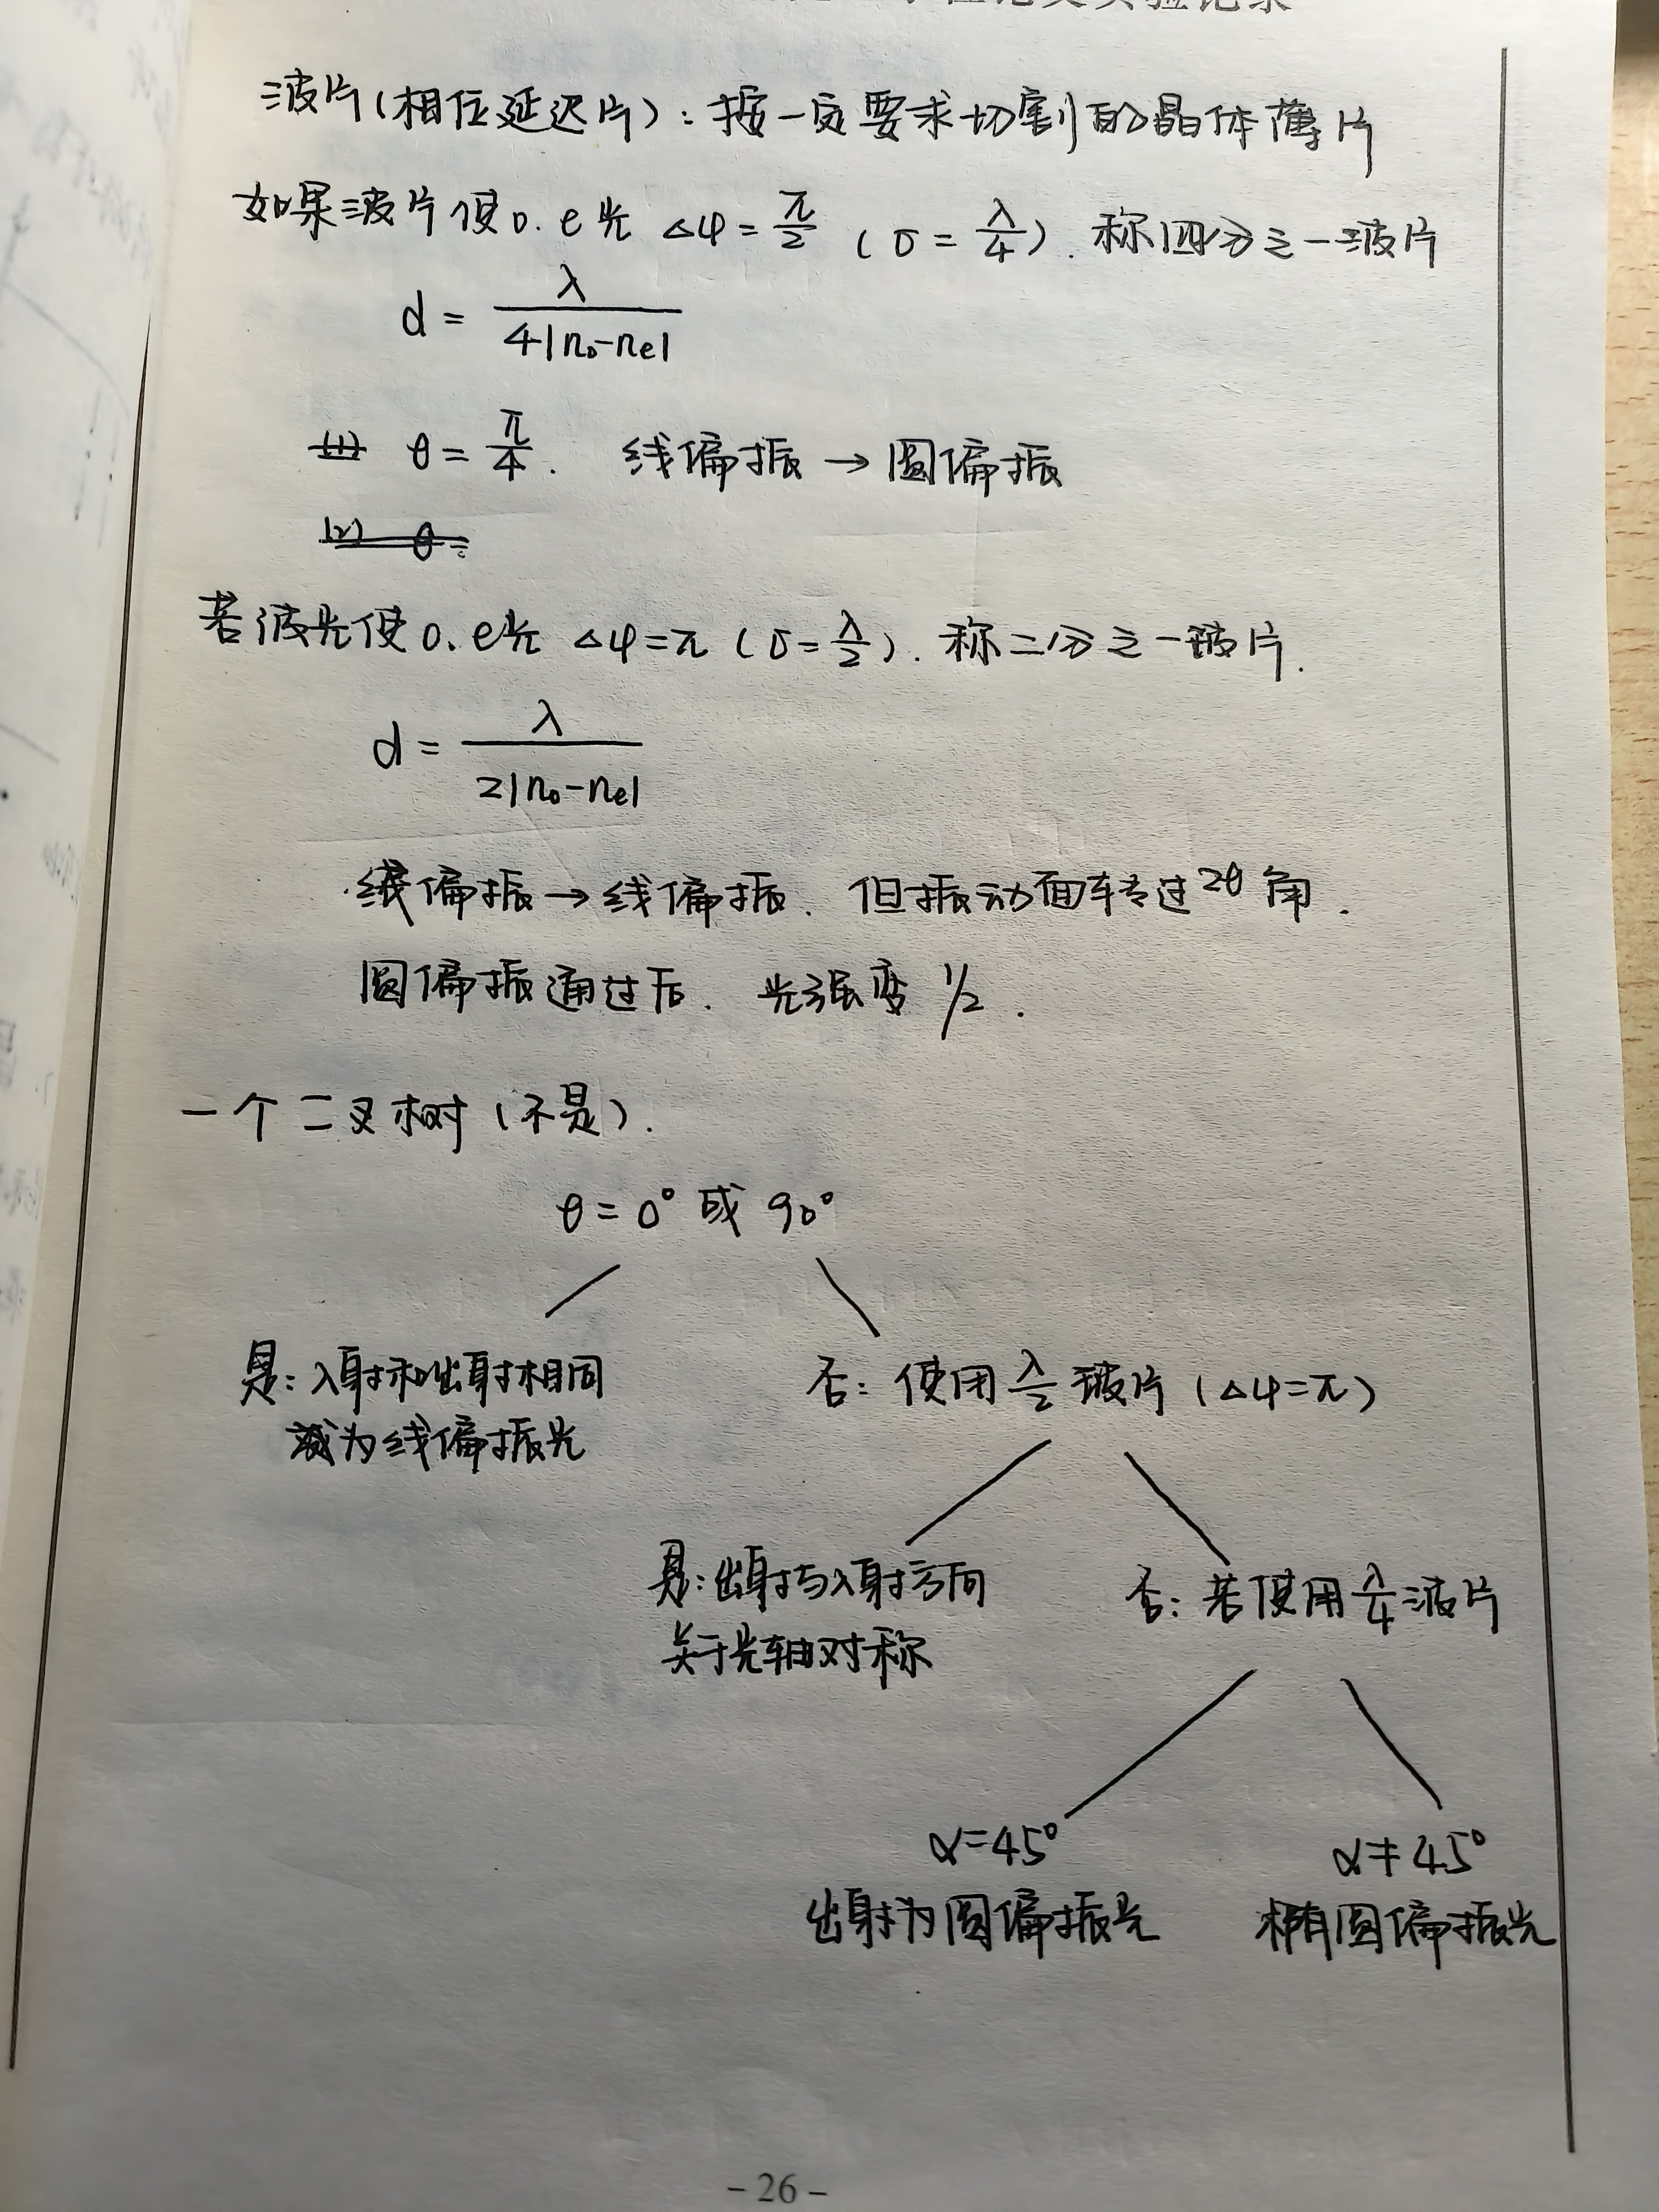 波片(相位延迟片): 按一定要求切割的晶体薄片
如果波片使o.e光 Δφ=π/2 (δ=λ/4). 称四分之一波片
d = λ/(4|n₀-nₑ|)
(1) θ=π/4. 线偏振→圆偏振
(2) θ=
若波光使o.e光 Δφ=π (δ=λ/2). 称二分之一玻片.
d = λ/(2|n₀-nₑ|)
线偏振→线偏振. 但振动面转过2θ角.
圆偏振通过后. 光强变1/2.
一个二叉树(不是).
θ=0°或90°
是: 入射和出射相同
否: 使用λ/2玻片(Δφ=π)
为线偏振光
是: 出射与入射方向
否: 若使用λ/4波片
关于光轴对称
α=45°
α≠45°
出射为圆偏振光
椭圆偏振光
- 26 -